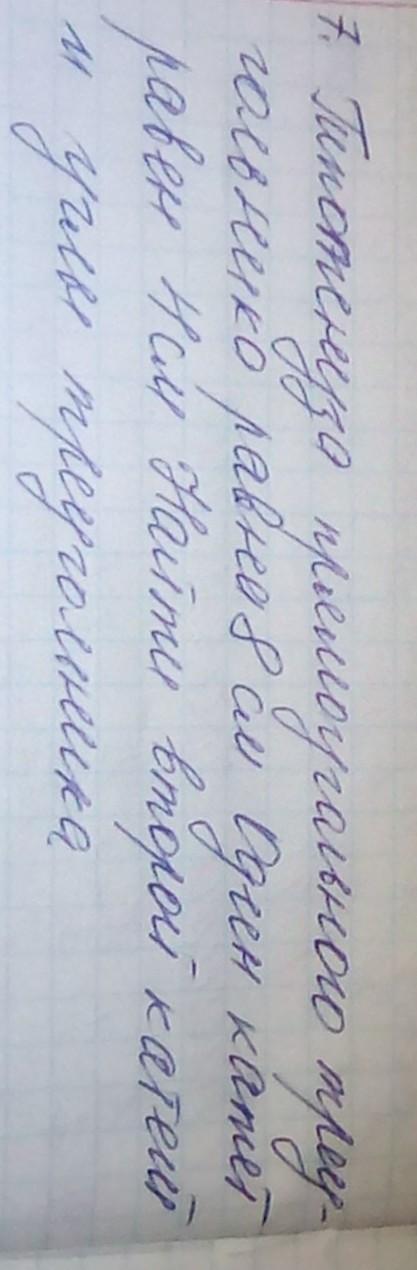 7. Гипотенуза прямоугольного треу-
гольнико равна 8 см Один катет
равен 4 см Найти второй катет
и углы треуголника